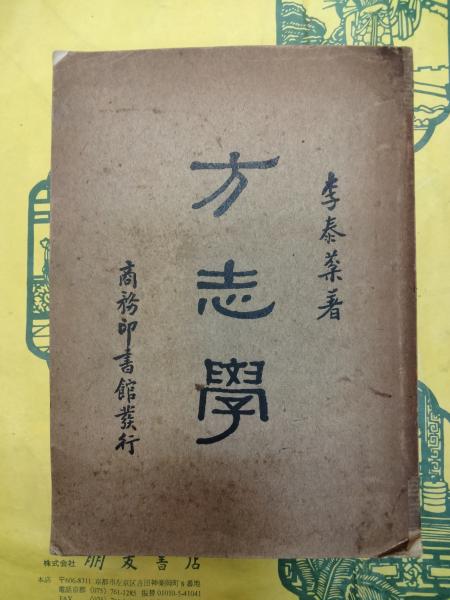 李泰棻著
方志學
商務印書館發行
株式会社 朋友書店
本店 〒606-8311 京都市左京区吉田神楽岡町8番地
電話京都 (075) 761-1285 振替 01010-5-41041
FAX (075)